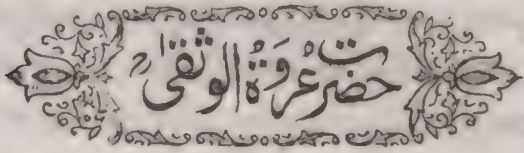 حضرت عُروَةُ الوثقیٰ رح